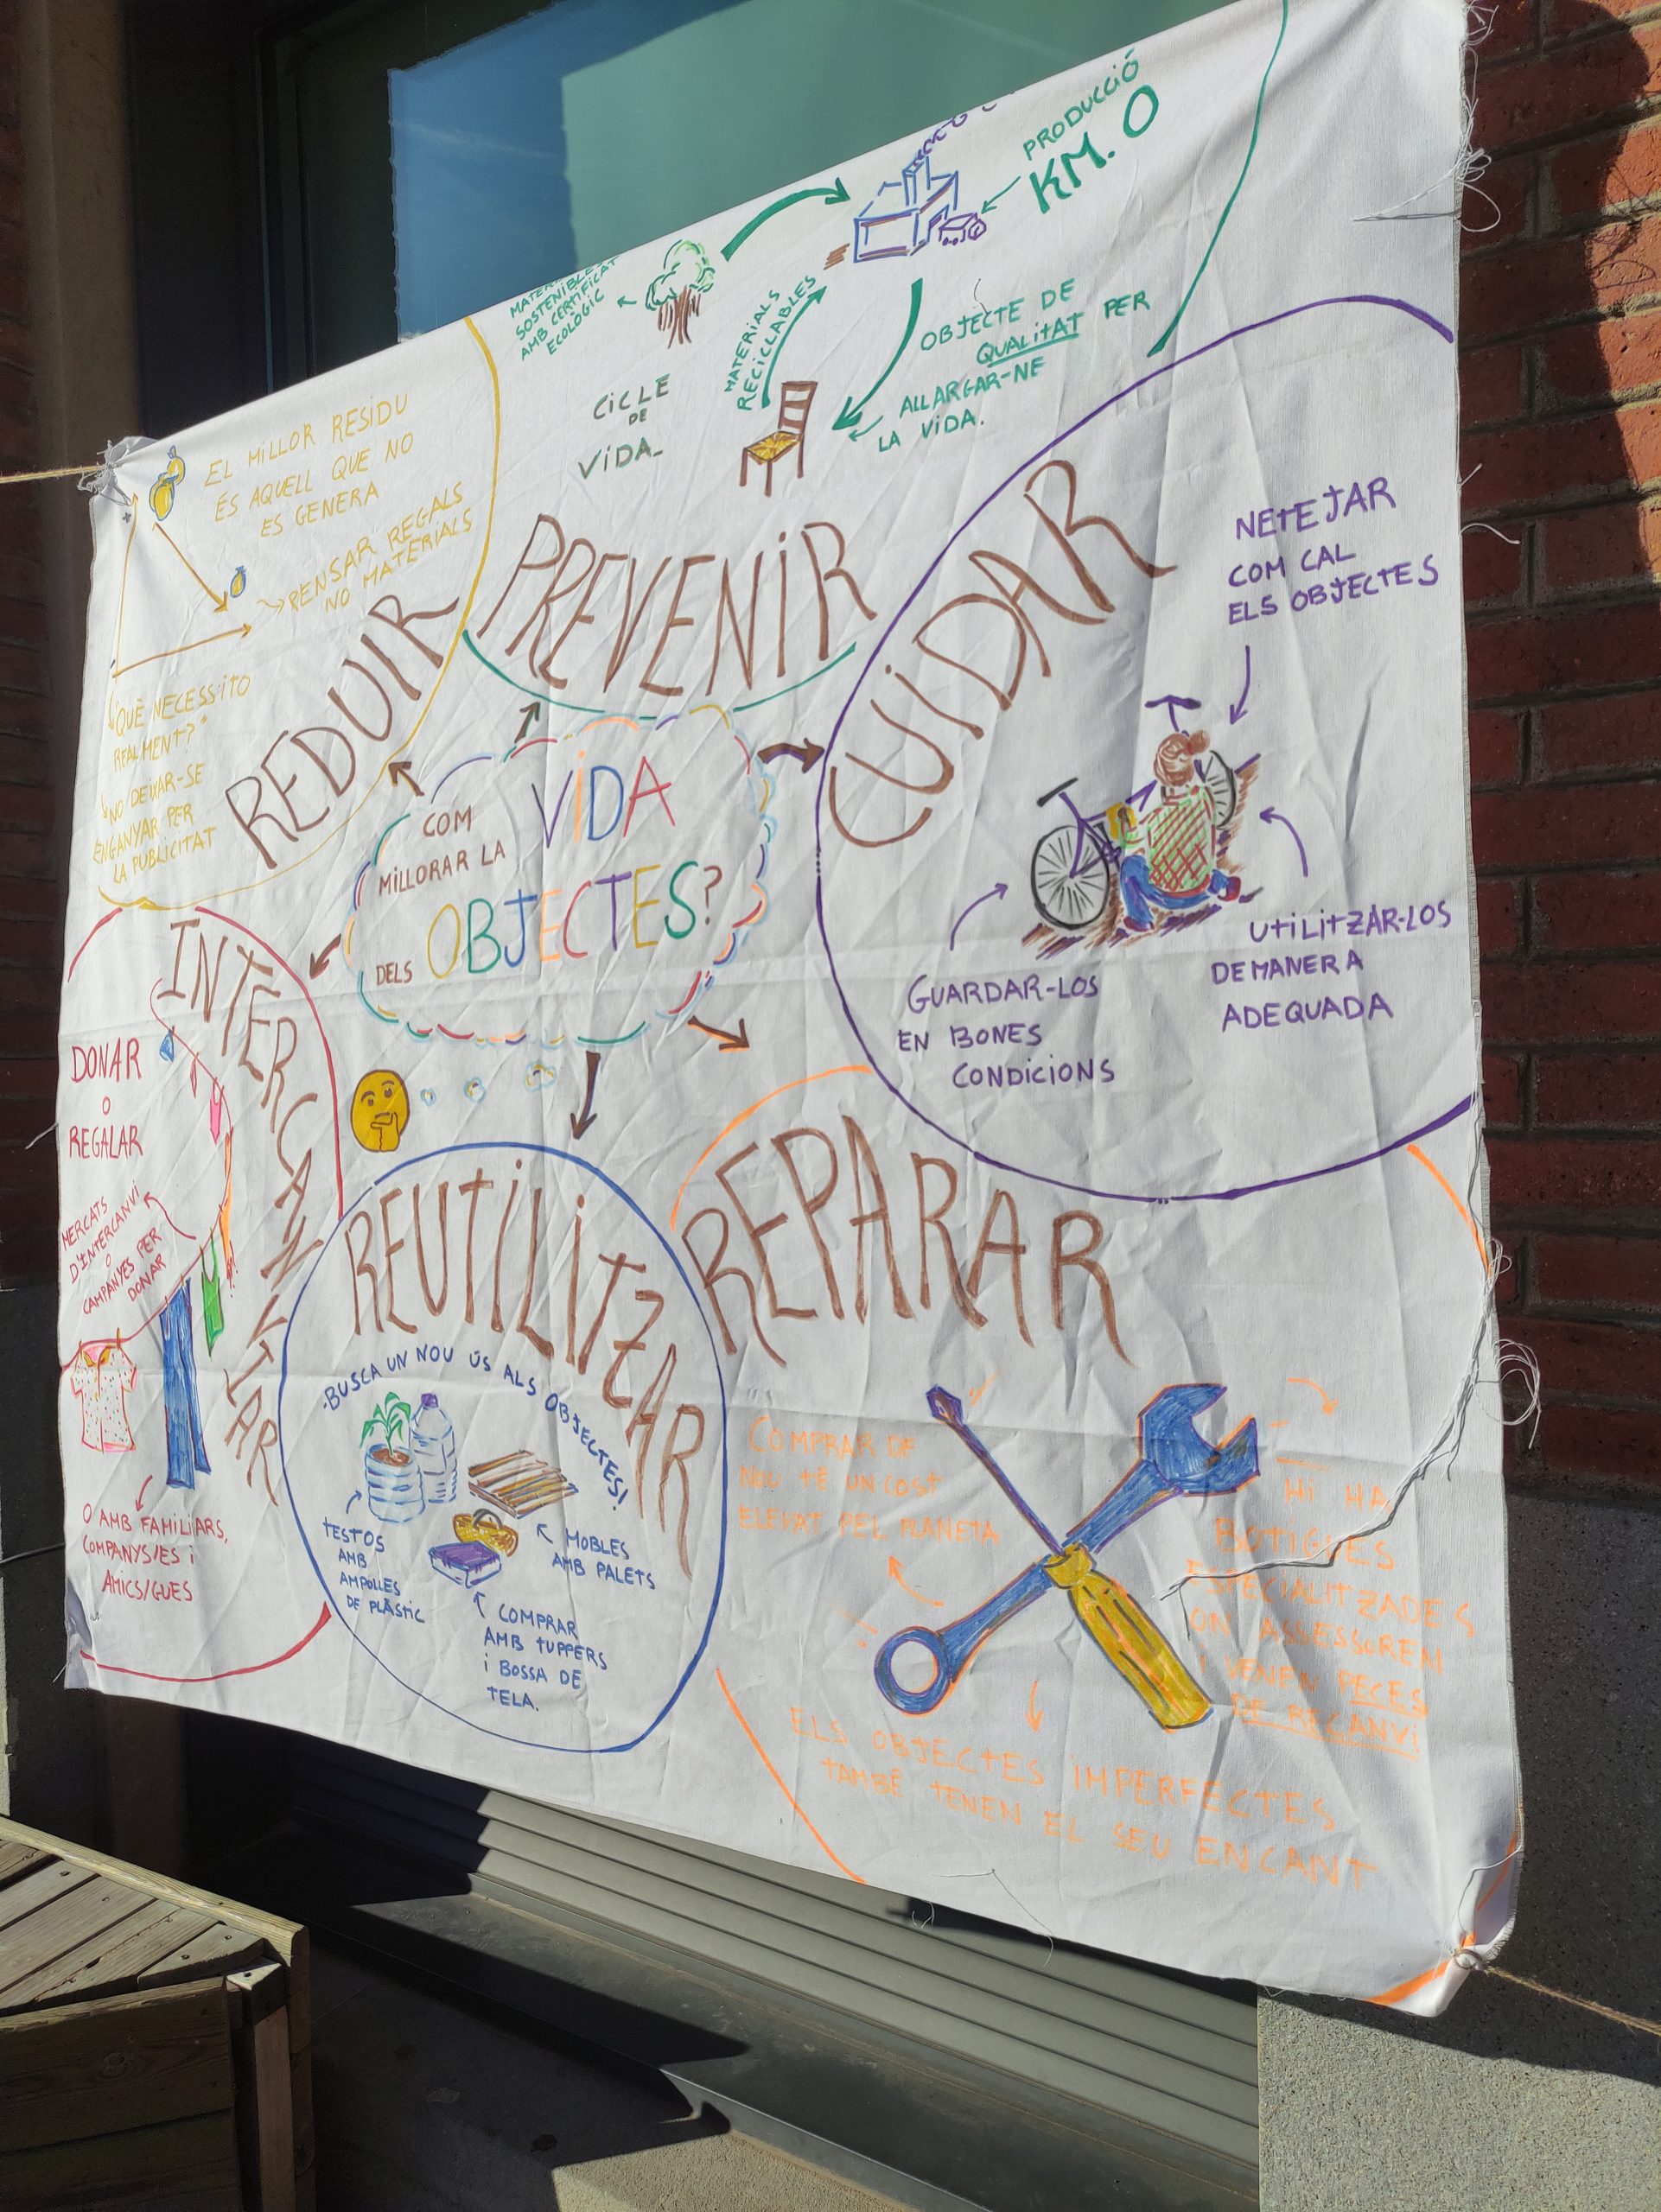 COM
MILLORAR LA
VIDA
DELS
OBJECTES?
PREVENIR
MATERIALS
SOSTENIBLES
AMB CERTIFICAT
ECOLÒGIC
PRODUCCIÓ
KM. 0
MATERIALS
RECICLABLES
OBJECTE DE
QUALITAT PER
ALLARGAR-NE
LA VIDA.
CICLE
DE
VIDA_
CUIDAR
NETEJAR
COM CAL
ELS OBJECTES
UTILITZAR-LOS
DE MANERA
ADEQUADA
GUARDAR-LOS
EN BONES
CONDICIONS
REPARAR
COMPRAR DE
NOU TÉ UN COST
ELEVAT PEL PLANETA
HI HA
BOTIGUES
ESPECIALITZADES
ON ASSESSOREN
I VENEN PECES
DE RECANVI
ELS OBJECTES IMPERFECTES
TAMBÉ TENEN EL SEU ENCANT
REUTILITZAR
·BUSCA UN NOU ÚS ALS OBJECTES!
TESTOS
AMB
AMPOLLES
DE PLÀSTIC
MOBLES
AMB PALETS
COMPRAR
AMB TUPPERS
I BOSSA DE
TELA.
INTERCANVIAR
DONAR
O
REGALAR
MERCATS
D'INTERCANVI
O
CAMPANYES PER
DONAR
O AMB FAMILIARS,
COMPANYS/ES I
AMICS/GUES
REDUIR
EL MILLOR RESIDU
ÉS AQUELL QUE NO
ES GENERA
PENSAR REGALS
NO MATERIALS
"QUÈ NECESSITO
REALMENT?"
NO DEIXAR-SE
ENGANYAR PER
LA PUBLICITAT